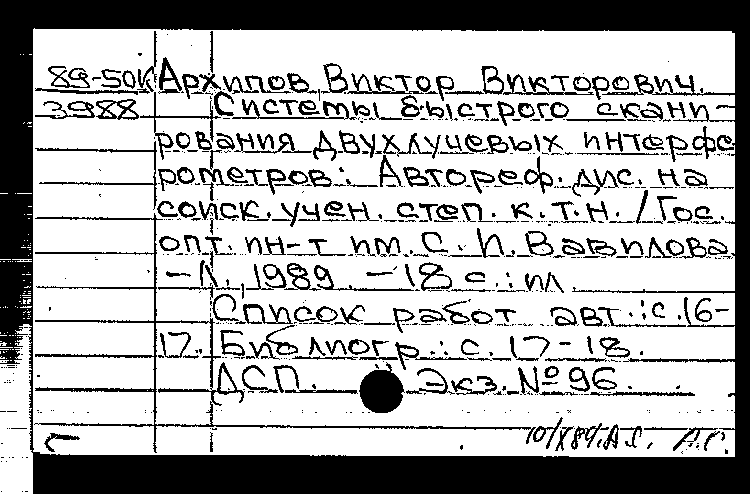 89-50К Архипов Виктор Викторович.
3988 Системы быстрого скани-
рования двухлучевых интерфе
рометров: Автореф. дис. на
соиск. учен. степ. к.т.н. / Гос.
опт. ин-т им. С. И. Вавилова
– Л., 1989. – 18 с.: ил.
Список работ авт.: с. 16-
17. Библиогр.: с. 17-18.
ДСП. Экз. № 96.